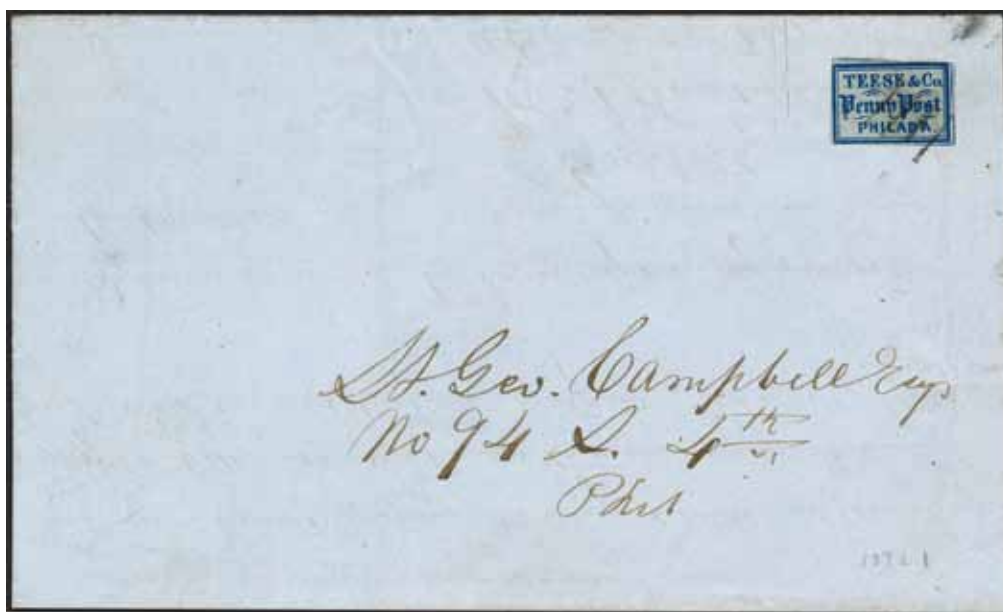 TEESE & Co
Penny Post
PHILADA.
St. Geo. Campbell Esqr
No 94 S. 4th
Phil
137L1